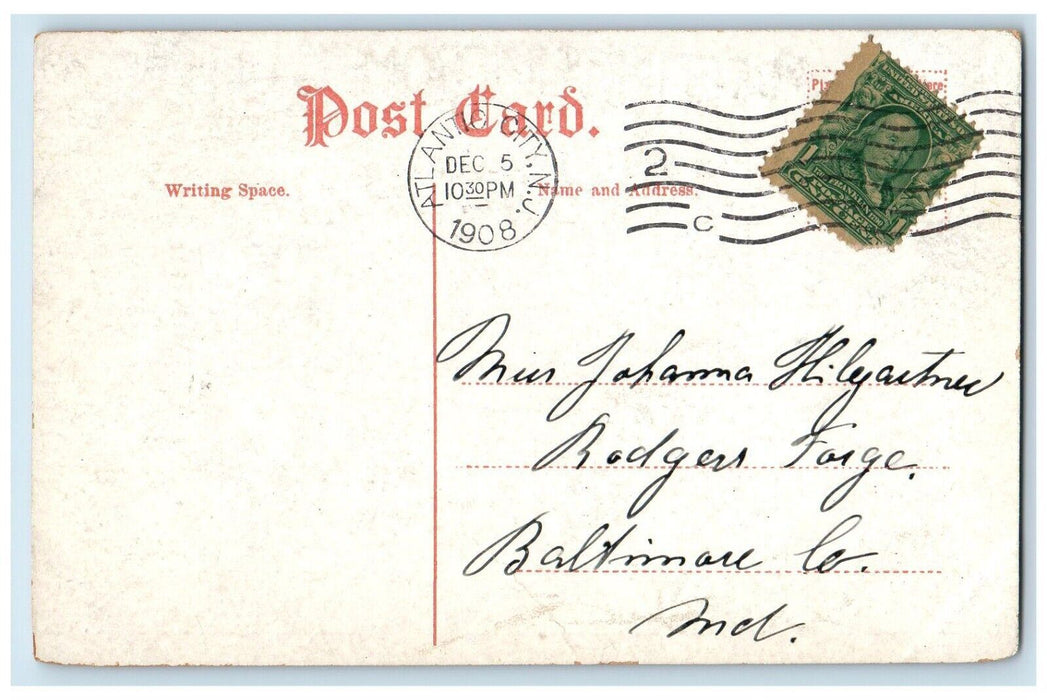 Post Card.
ATLANTIC CITY, N.J.
DEC 5
10 30 PM
1908
2
C
Writing Space.
Name and Address.
Miss Johanna Hilgartner
Rodgers Forge.
Baltimore Co.
Md.